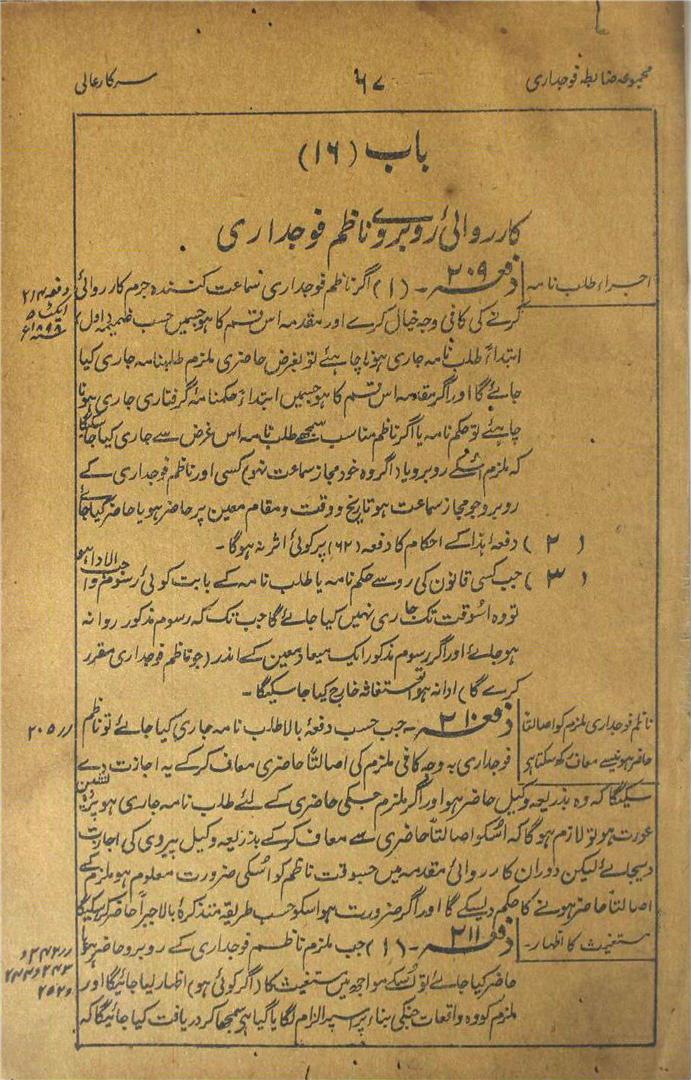 مجموعہ ضابطہ فوجداری
۶۷
سرکار عالی
باب (۱۶)
کارروائی روبروے ناظم فوجداری
اجراء طلب نامہ
دفعہ ۲۰۹ ۔ (۱) اگر ناظم فوجداری سماعت کنندہ جرم کارروائی
دفعہ ۲۰۴
ایکٹ ۵
۱۸۹۸ء
کرنے کی کافی وجہ خیال کرے اور مقدمہ اس قسم کا ہو جسمیں حسب ضمیمہ (اول)
ابتداءً طلب نامہ جاری ہونا چاہئے تو بغرض حاضری ملزم طلبنامہ جاری کیا
جائے گا اور اگر مقدمہ اس قسم کا ہو جسمیں ابتداءً حکمنامۂ گرفتاری جاری ہونا
چاہئے تو حکم نامہ یا اگر ناظم مناسب سمجھے طلب نامہ اس غرض سے جاری کیا جا سکیگا
کہ ملزم اسکے روبرو یا (اگر وہ خود مجاز سماعت نہو) کسی اور ناظم فوجداری کے
روبرو جو مجاز سماعت ہو تاریخ و وقت و مقام معین پر حاضر ہو یا حاضر کیا جائے
(۲) دفعہ ہذا کے احکام کا دفعہ (۶۲) پر کوئی اثر نہ ہوگا ۔
(۳) جب کسی قانون کی رو سے حکم نامہ یا طلب نامہ کے بابت کوئی رسوم واجب الادا ہو
تو وہ اسوقت تک جاری نہیں کیا جائے گا جب تک کہ رسوم مذکور روانہ
ہوجائے اور اگر رسوم مذکور ایک میعاد معین کے اندر (جو ناظم فوجداری مقرر
کرے گا) ادا نہ ہو تو استغاثہ خارج کیا جاسکیگا ۔
ناظم فوجداری ملزم کو اصالتاً
حاضر ہونیسے معاف کرسکتا ہے
دفعہ ۲۱۰ ۔ جب حسب دفعۂ بالا طلب نامہ جاری کیا جائے تو ناظم
〃 ۲۰۵
فوجداری بہ وجہ کافی ملزم کی اصالتاً حاضری معاف کرکے یہ اجازت دے
سکیگا کہ وہ بذریعہ وکیل حاضر ہو اور اگر ملزم جسکی حاضری کے لئے طلب نامہ جاری ہو پردہ نشین
عورت ہو تو لازم ہوگا کہ اسکو اصالتاً حاضری سے معاف کرکے بذریعہ وکیل پیروی کی اجازت
دیجائے لیکن دوران کارروائی مقدمہ میں جسوقت ناظم کو اسکی ضرورت معلوم ہو ملزم کے
اصالتاً حاضر ہونے کا حکم دیسکے گا اور اگر ضرورت ہو اسکو حسب طریقہ متذکرۂ بالا جبراً حاضر کرسکیگا
مستغیث کا اظہار ۔
دفعہ ۲۱۱ ۔ (۱) جب ملزم ناظم فوجداری کے روبرو حاضر ہو یا
〃 ۲۴۲ و
۲۴۳ و ۲۴۴
حاضر کیا جائے تو اسکے مواجہہ میں مستغیث کا (اگر کوئی ہو) اظہار لیا جائیگا اور
ملزم کو وہ واقعات جنکی بناء پر اسپر الزام لگایا گیا ہے سمجھا کر دریافت کیا جائیگا کہ